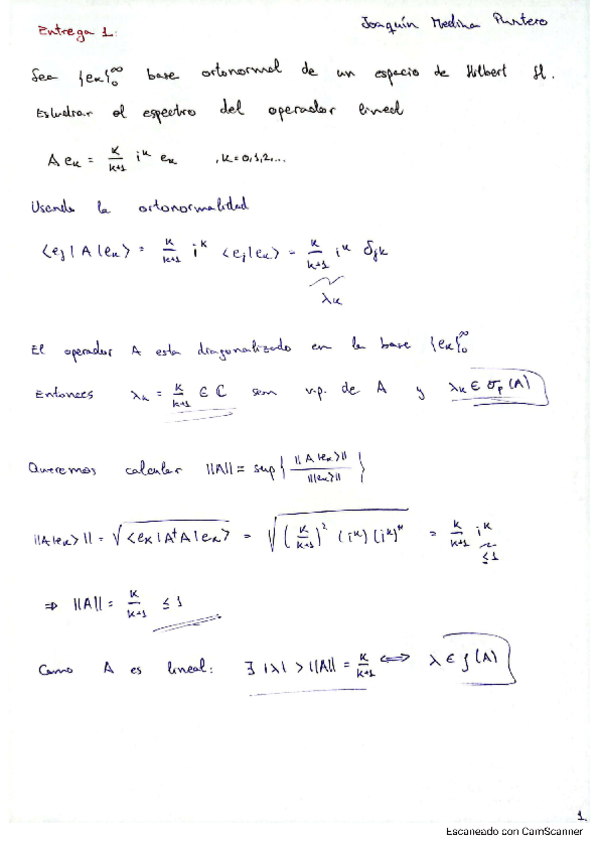 Entrega 1:
Joaquín Medina Puntero
Sea {eₖ}₀^∞ base ortonormal de un espacio de Hilbert H.
Estudiar el espectro del operador lineal
A eₖ = k/(k+1) iᵏ eₖ , k=0,1,2,...
Usando la ortonormalidad
⟨eⱼ|A|eₖ⟩ = k/(k+1) iᵏ ⟨eⱼ|eₖ⟩ = k/(k+1) iᵏ δⱼₖ
λₖ
El operador A esta diagonalizado en la base {eₖ}₀^∞
Entonces λₖ = k/(k+1) ∈ ℂ son v.p. de A y λₖ ∈ σₚ(A)
Queremos calcular ||A|| = sup { ||A|eₖ⟩|| / |||eₖ⟩|| }
||A|eₖ⟩|| = √⟨eₖ|A†A|eₖ⟩ = √((k/(k+1))² (iᵏ)(iᵏ)*) = k/(k+1) iᵏ
≤1
⇒ ||A|| = k/(k+1) ≤ 1
Como A es lineal: ∃ |λ| > ||A|| = k/(k+1) ⟺ λ ∈ ρ(A)
1
Escaneado con CamScanner